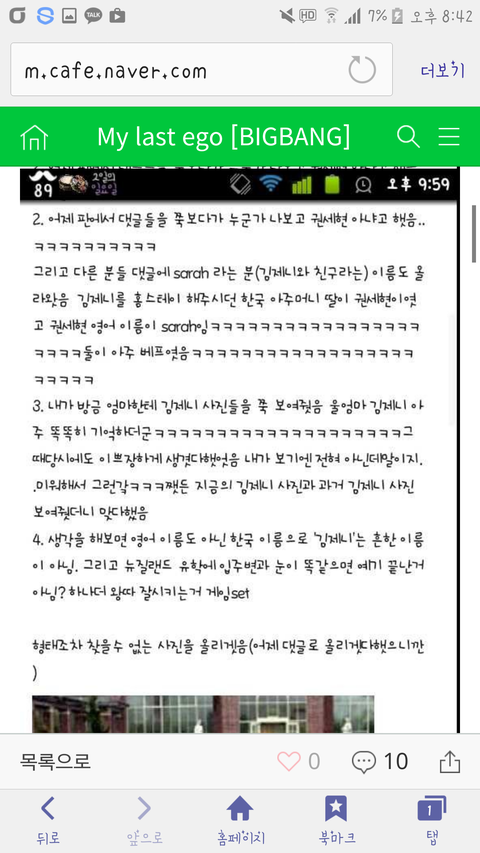 TALK HD 7% 오후 8:42
m.cafe.naver.com 더보기
My last ego [BIGBANG]
89 2일의 일요일 오후 9:59
2. 어제 판에서 댓글들을 쭉보다가 누군가 나보고 권세현 아냐고 햇음..
ㅋㅋㅋㅋㅋㅋㅋㅋㅋㅋ
그리고 다른 분들 댓글에 sarah 라는 분(김제니와 친구라는) 이름도 올
라왔음 김제니를 홈스테이 해주시던 한국 아주머니 딸이 권세현이엿
고 권세현 영어 이름이 sarah임ㅋㅋㅋㅋㅋㅋㅋㅋㅋㅋㅋㅋㅋㅋㅋㅋ
ㅋㅋㅋㅋ둘이 아주 베프엿음ㅋㅋㅋㅋㅋㅋㅋㅋㅋㅋㅋㅋㅋㅋㅋㅋㅋ
ㅋㅋㅋㅋㅋ
3. 내가 방금 엄마한테 김제니 사진들을 쭉 보여줫음 울엄마 김제니 아
주 똑똑히 기억하더군ㅋㅋㅋㅋㅋㅋㅋㅋㅋㅋㅋㅋㅋㅋㅋㅋㅋㅋㅋ그
때당시에도 이쁘장하게 생겻다햇엇음 내가 보기엔 전혀 아닌데말이지.
.미워해서 그런갘ㅋㅋㅋ쨋든 지금의 김제니 사진과 과거 김제니 사진
보여줫더니 맞다했음
4. 생각을 해보면 영어 이름도 아닌 한국 이름으로 '김제니'는 흔한 이름
이 아님. 그리고 뉴질랜드 유학에 입주변과 눈이 똑같으면 얘기 끝난거
아님? 하나더 왕따 잘시키는거 게임set
형태조차 찾을수 없는 사진을 올리겟음(어제 댓글로 올리겟다햇으니깐
)
목록으로 0 10
뒤로 앞으로 홈페이지 북마크 1 탭